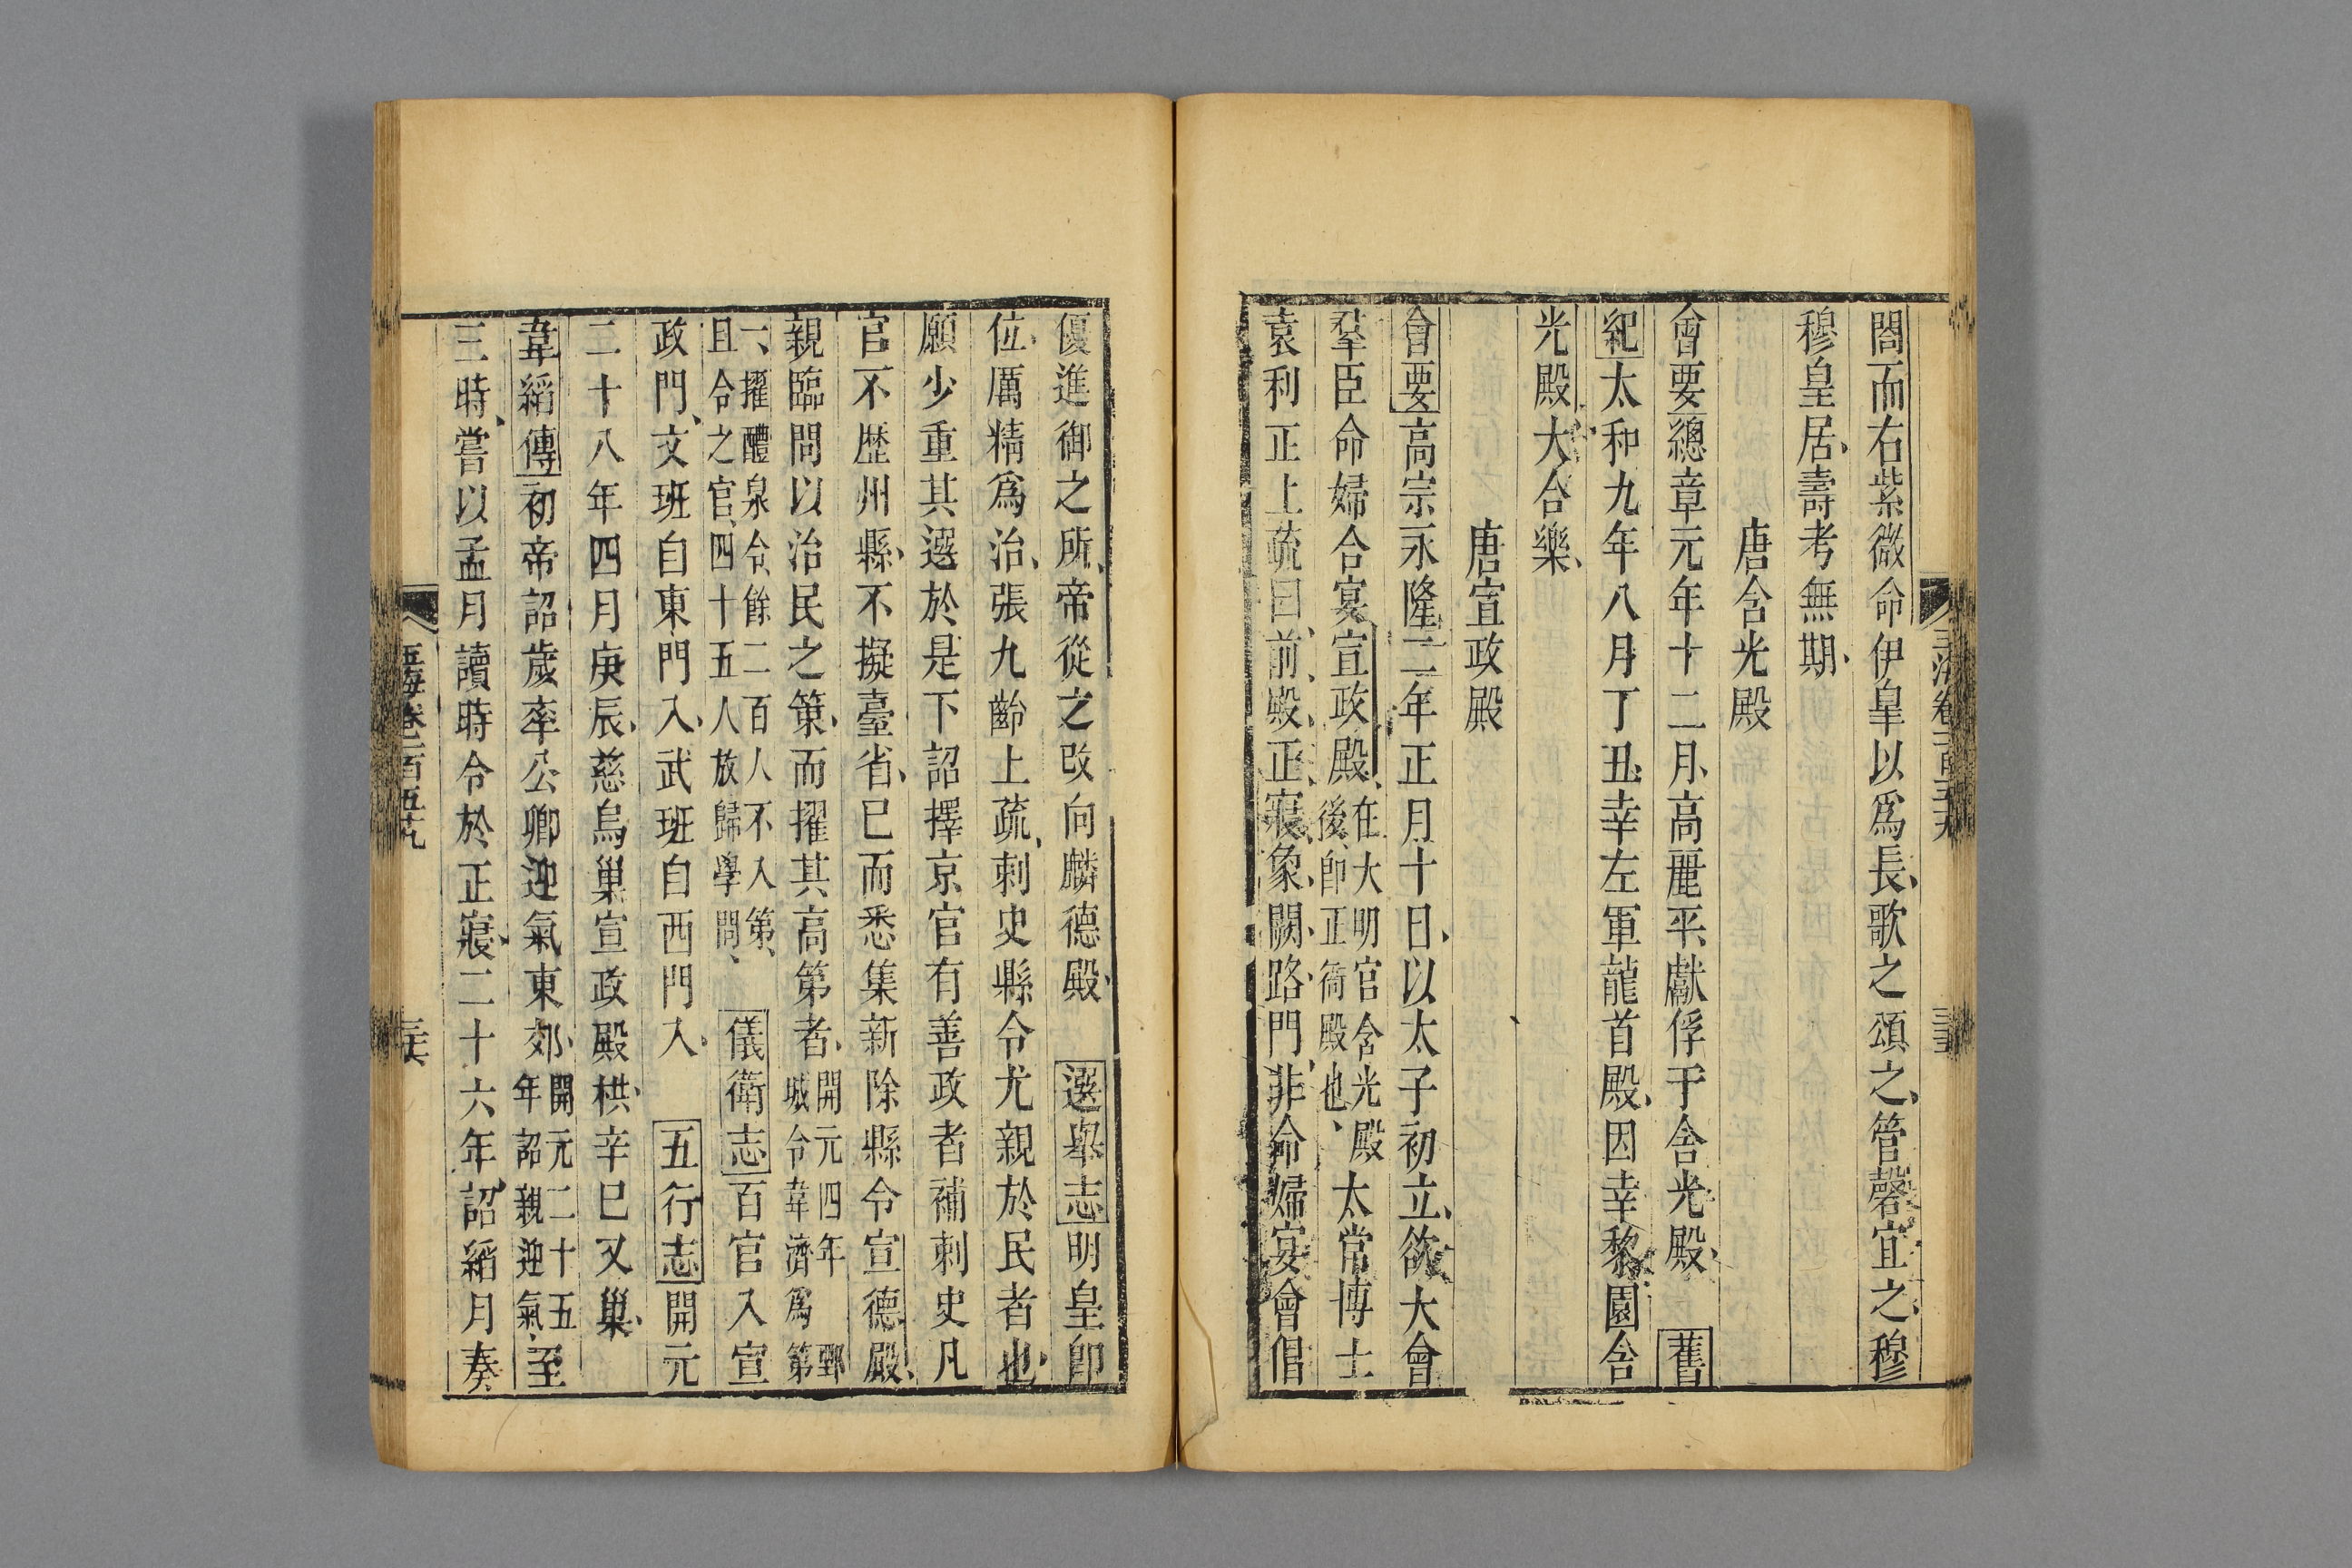 閤而右紫微命伊臯以爲長歌之頌之管磬宜之穆
穆皇居壽考無期
唐含光殿
會要總章元年十二月高麗平獻俘于含光殿 舊
紀太和九年八月丁丑幸左軍龍首殿因幸黎園含
光殿大合樂
唐宣政殿
會要高宗永隆二年正月十日以太子初立欲大會
羣臣命婦合宴宣政殿在大明宮含光殿後卽正衙殿也太常博士
袁利正上疏曰前殿正寢象闕路門非命婦宴會倡
優進御之所帝從之改向麟德殿 選舉志明皇卽
位厲精爲治張九齡上疏刺史縣令尤親於民者也
願少重其選於是下詔擇京官有善政者補刺史凡
官不歷州縣不擬臺省已而悉集新除縣令宣德殿
親臨問以治民之策而擢其高第者開元四年鄄城令韋濟爲第
一擢醴泉令餘二百人不入第且令之官四十五人放歸學問 儀衛志百官入宣
政門文班自東門入武班自西門入 五行志開元
二十八年四月庚辰慈烏巢宣政殿栱辛巳又巢
韋縚傳初帝詔歲率公卿迎氣東郊開元二十五年詔親迎氣至
三時嘗以孟月讀時令於正寢二十六年詔縚月奏
玉海卷一百五十九